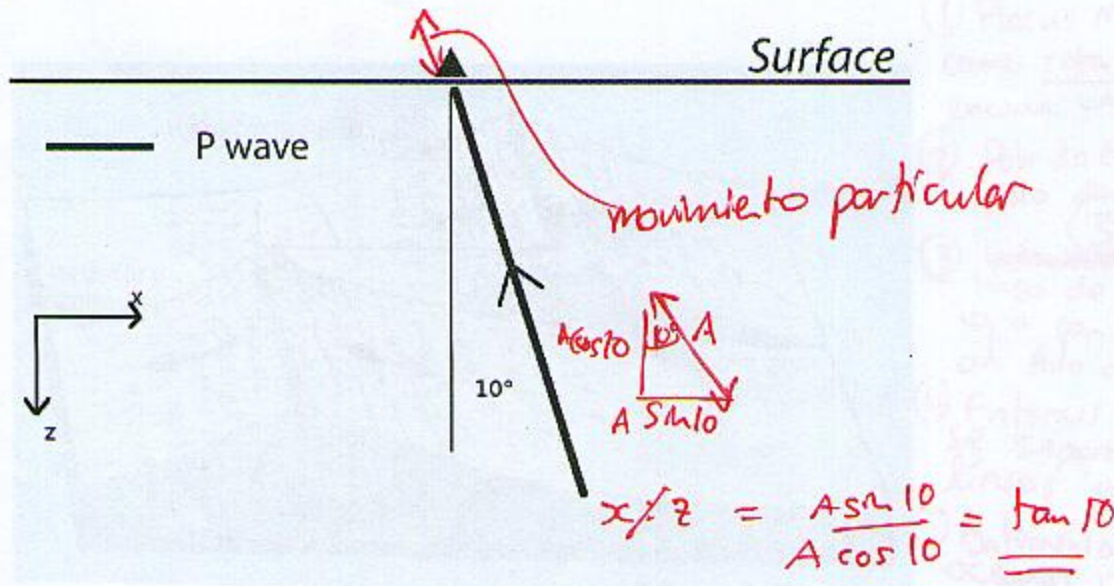 Surface
P wave
movimiento particular
x
z
10°
A cos 10
10°
A
A sin 10
x/z = A sin 10 / A cos 10 = tan 10